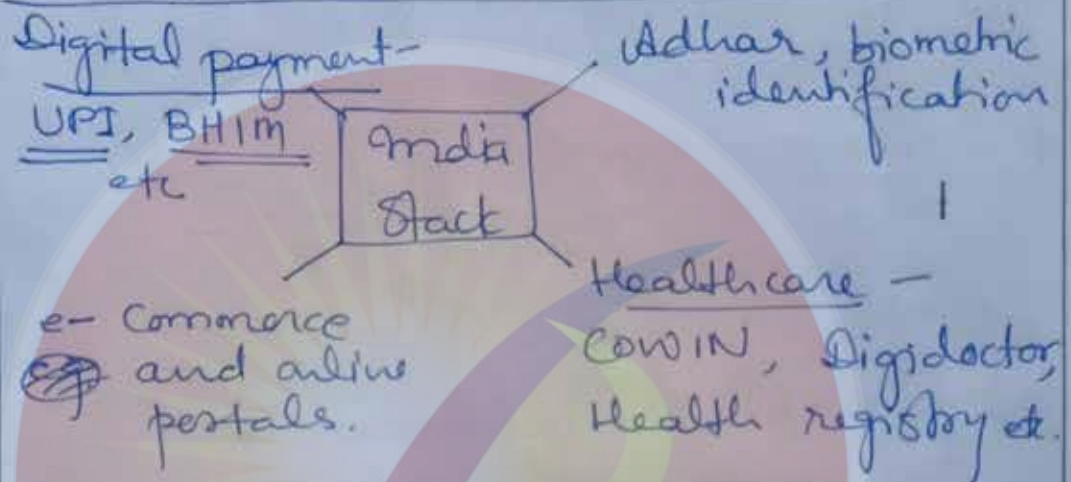 Digital payment-
UPI, BHIM
etc
Adhar, biometric
identification
India
Stack
e- Commerce
and online
portals.
Healthcare -
COWIN, Digidoctor,
Health registry etc.